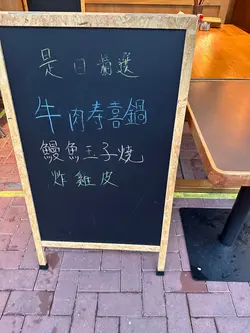 是日嚴選
牛肉寿喜鍋
鰻魚玉子燒
炸雞皮